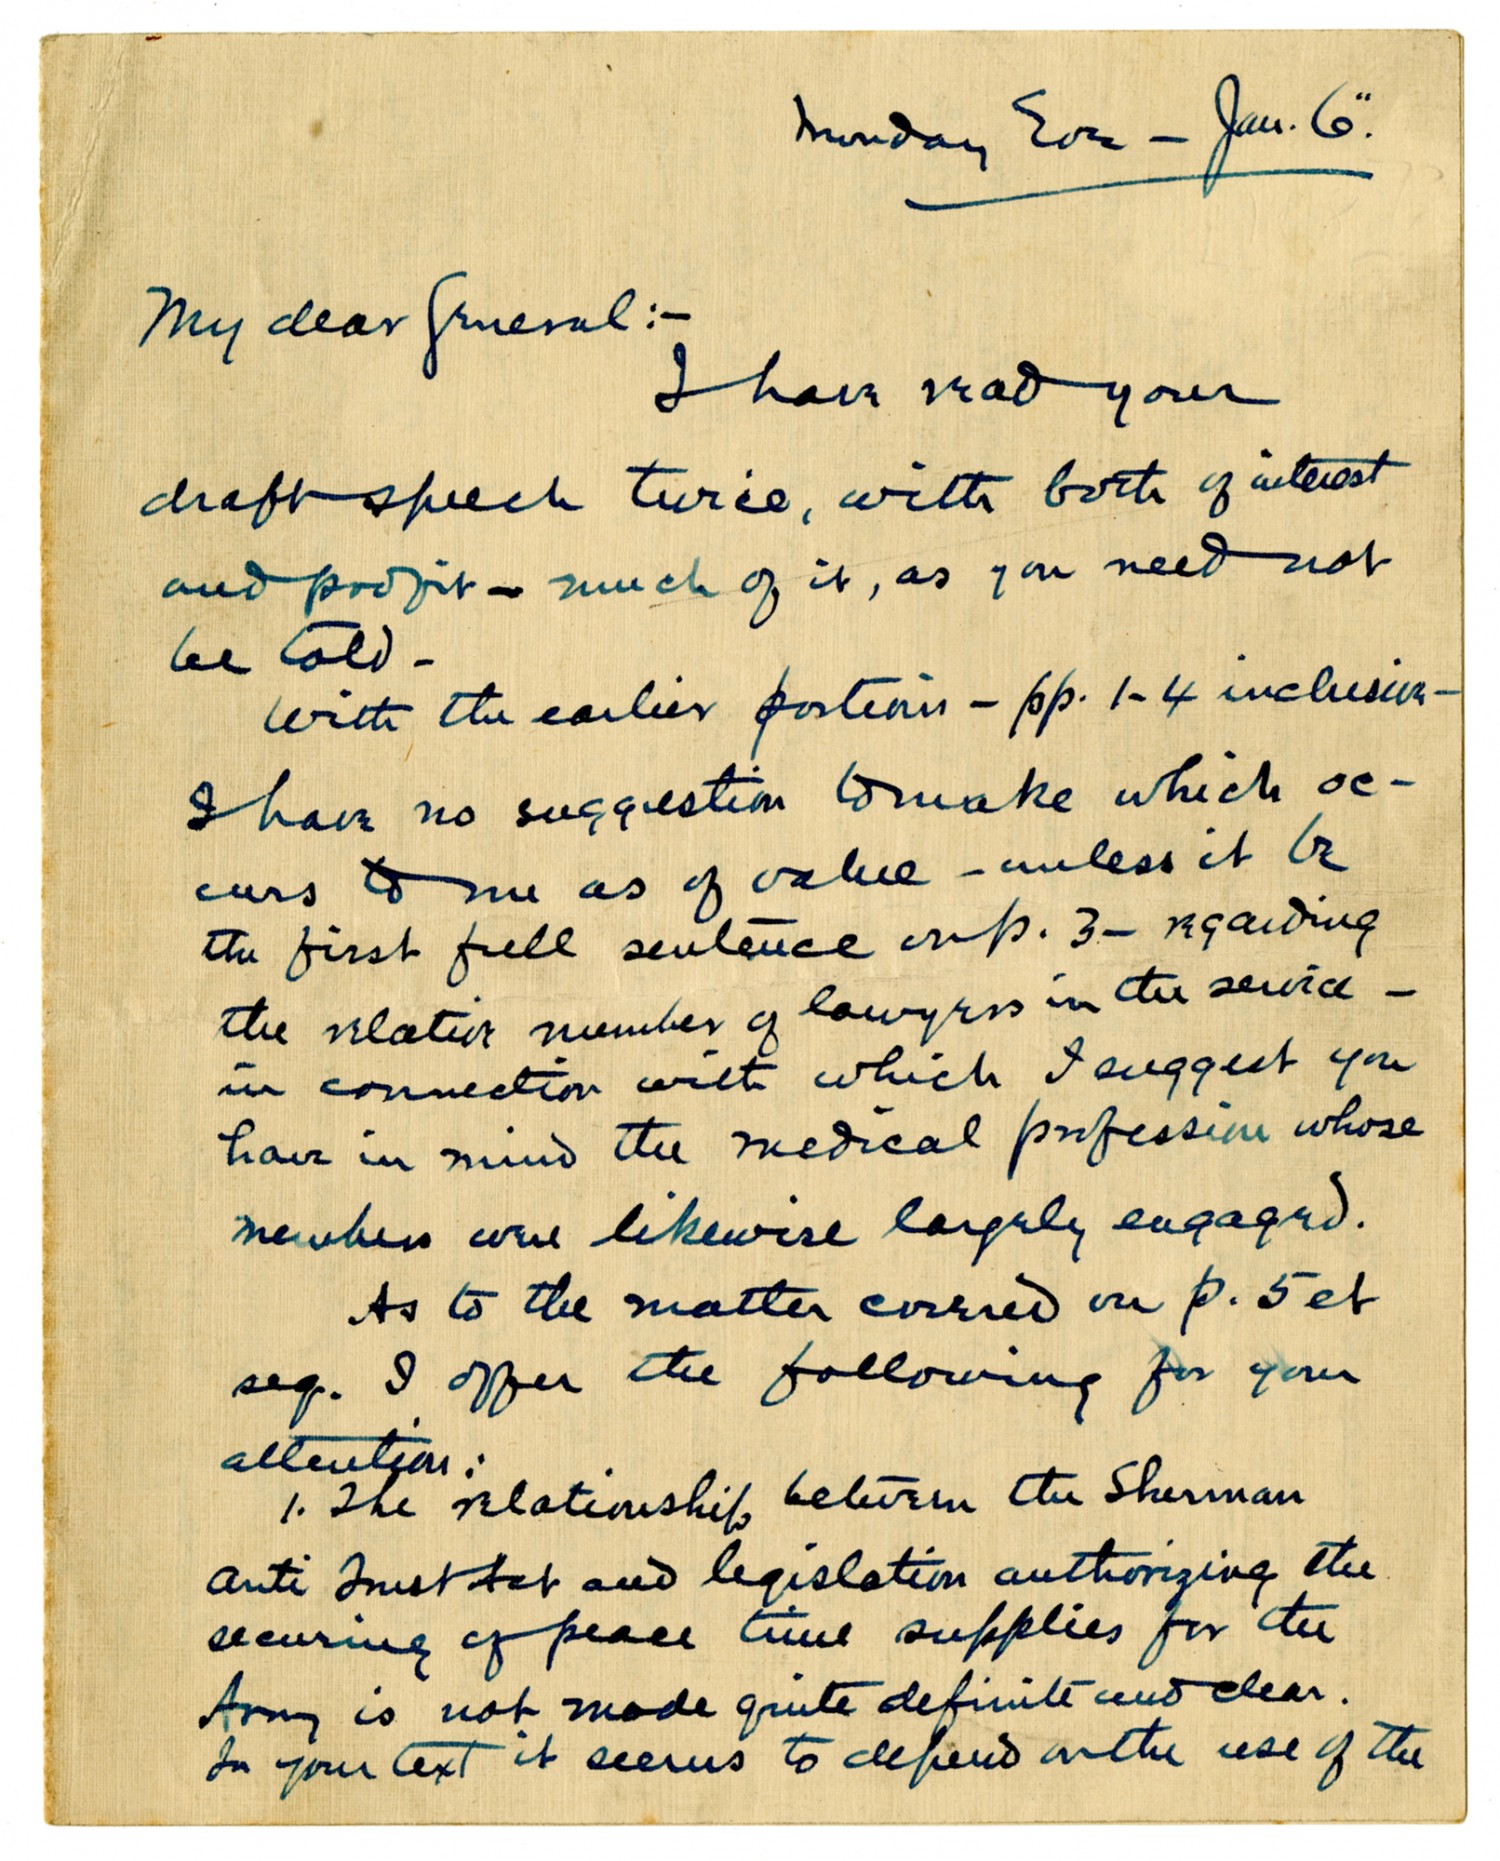 Monday Eve – Jan. 6".
My dear General:–
I have read your
draft speech twice, with both of interest
and profit – much of it, as you need not
be told –
With the earlier portions – pp. 1-4 inclusive –
I have no suggestion to make which oc-
curs to me as of value – unless it be
the first full sentence on p. 3 – regarding
the relative number of lawyers in the service –
in connection with which I suggest you
have in mind the medical profession whose
members were likewise largely engaged.
As to the matter covered on p. 5 et
seq. I offer the following for your
attention:
1. The relationship between the Sherman
Anti Trust Act and legislation authorizing the
securing of peace time supplies for the
Army is not made quite definite and clear.
In your text it seems to depend on the use of the